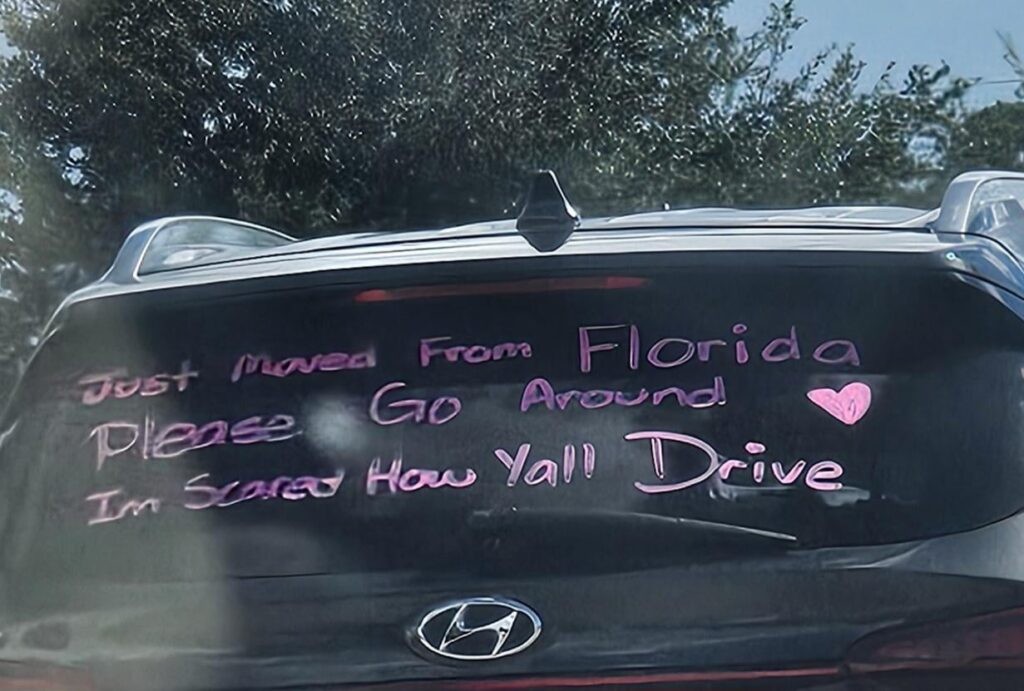 Just Moved From Florida
Please Go Around
Im Scared How Yall Drive